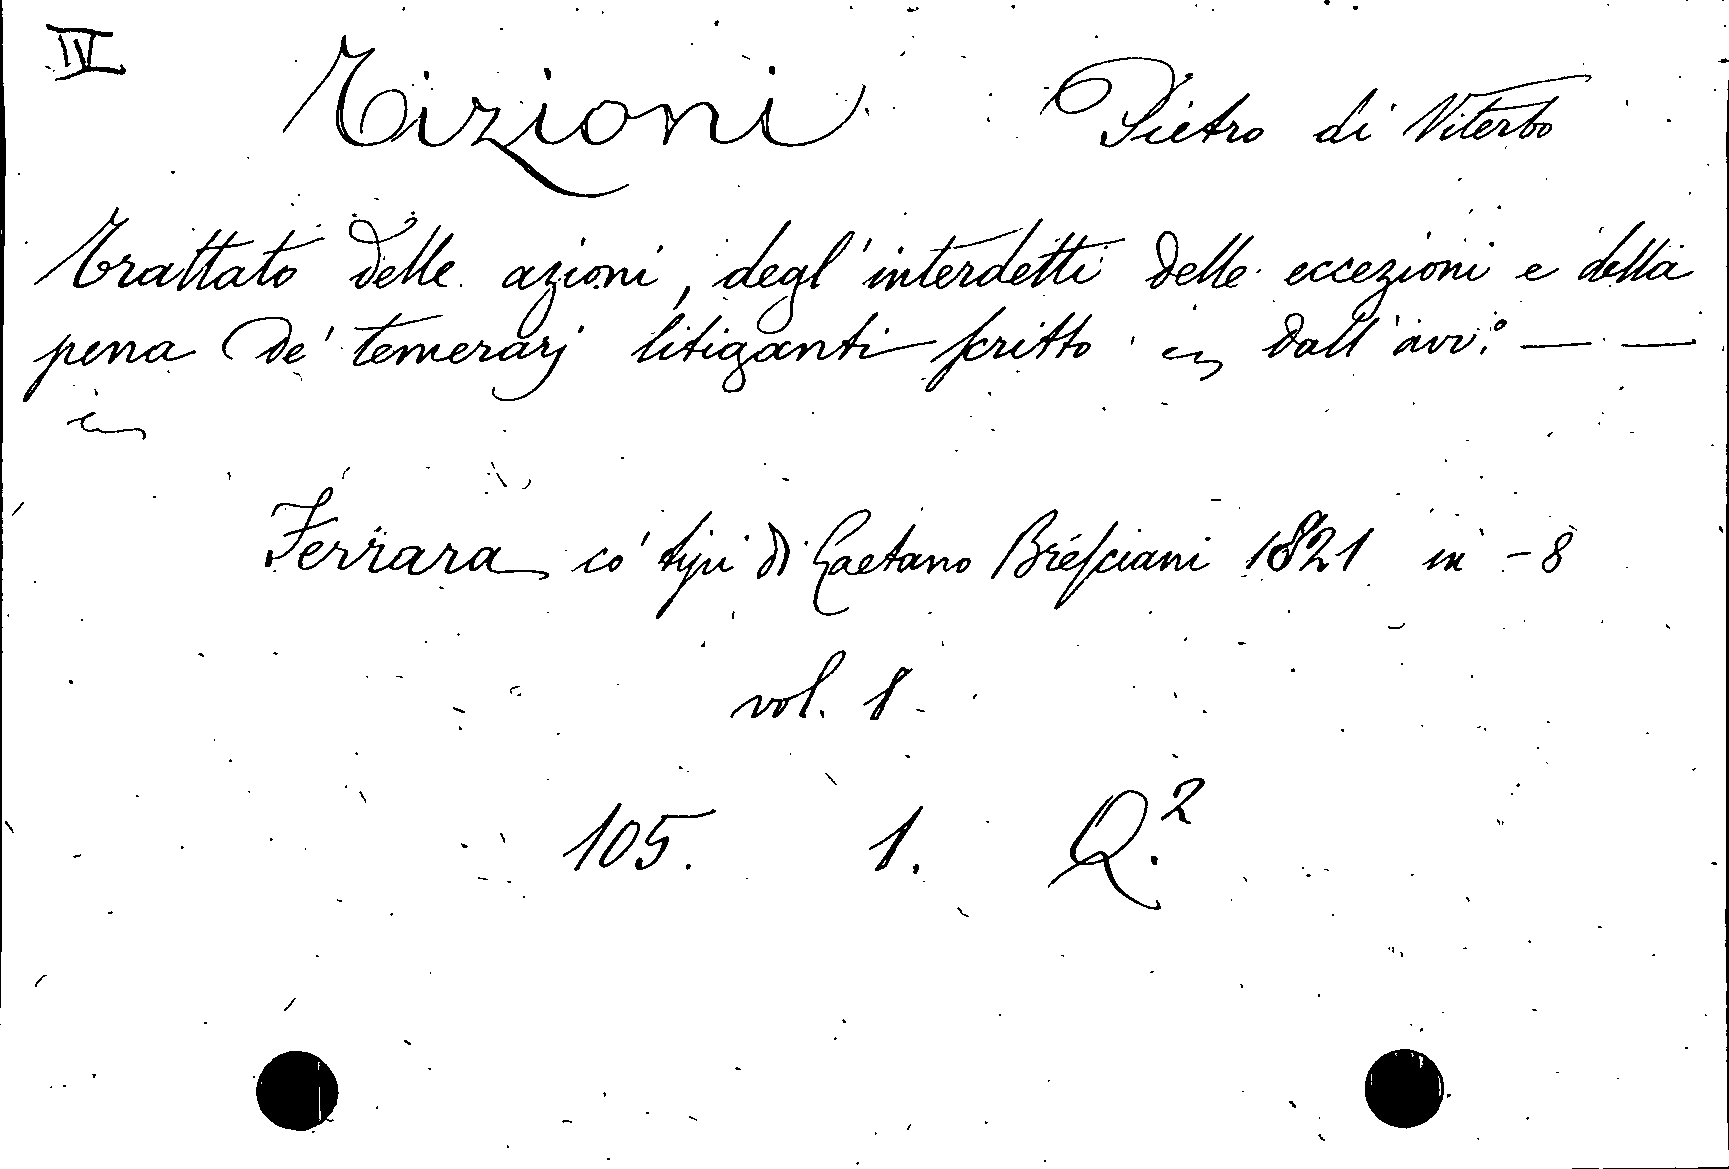 IV
Tizioni Pietro di Viterbo
Trattato delle azioni, degl'interdetti delle eccezioni e della
pena de' temerarj litiganti scritto dall'avv.º — —
Ferrara co' tipi di Gaetano Bresciani 1821 in - 8
vol. 1
105. 1. Q.²